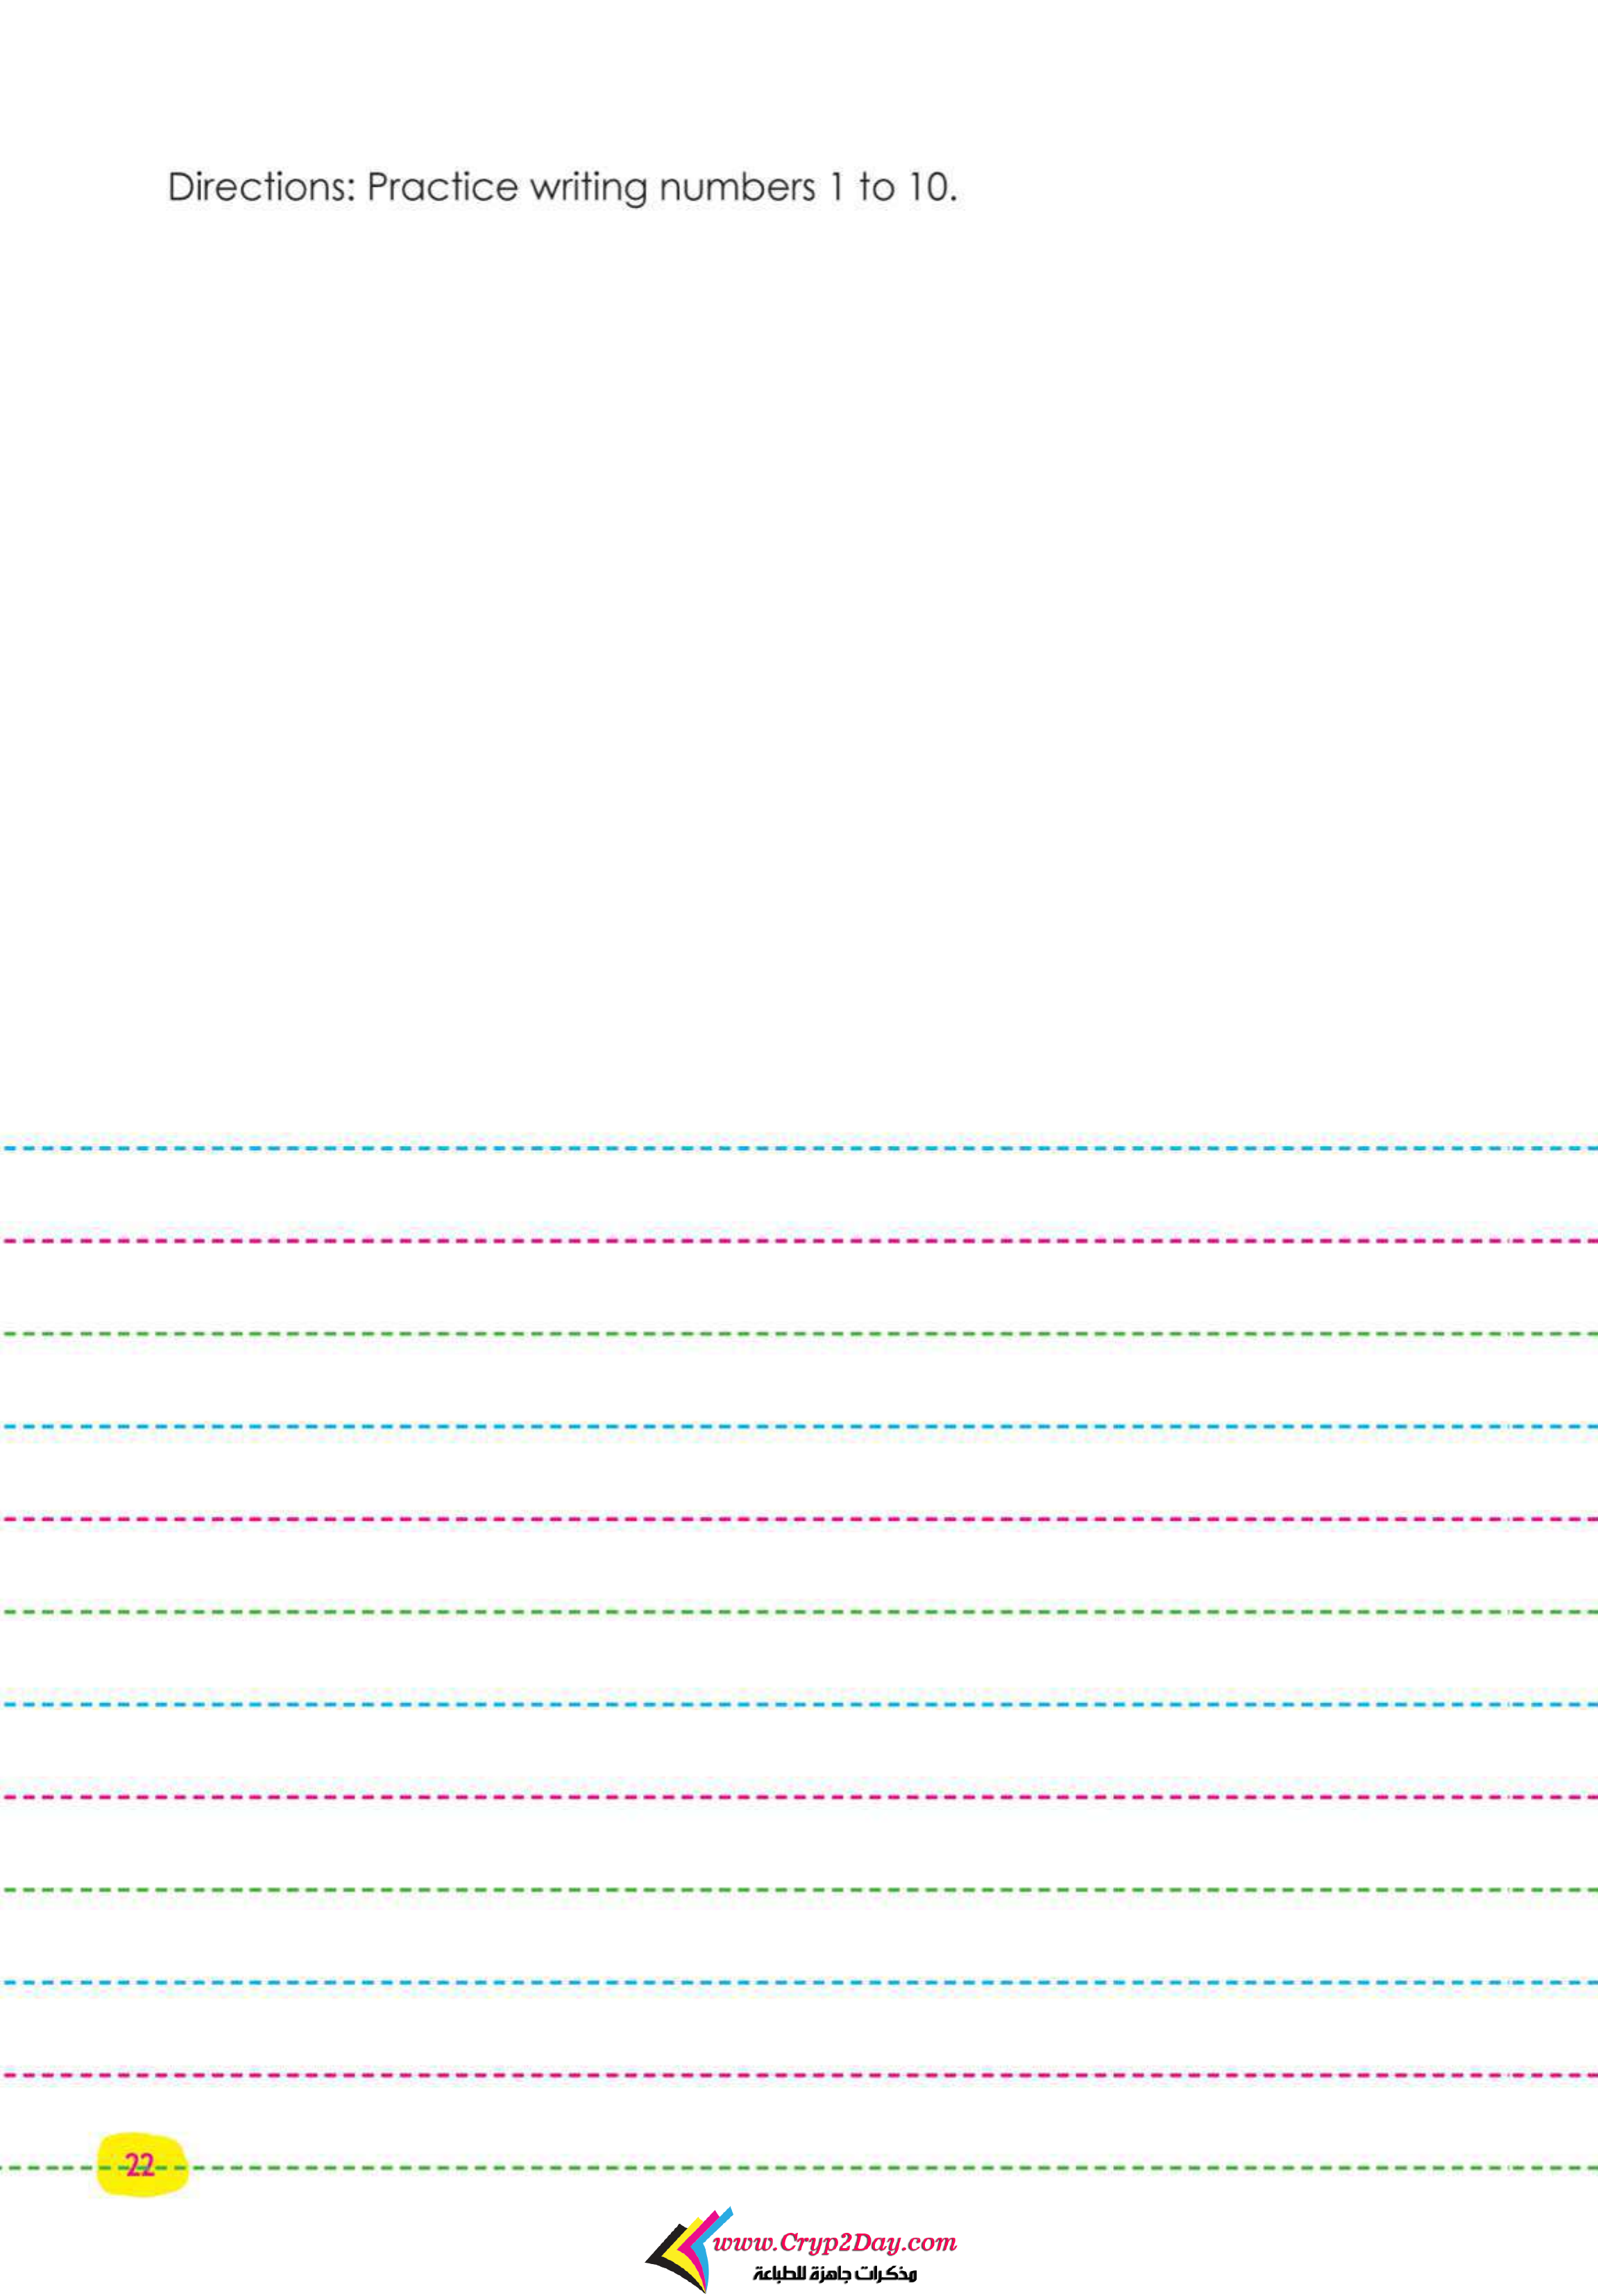 Directions: Practice writing numbers 1 to 10.
22
www.Cryp2Day.com
مذكرات جاهزة للطباعة